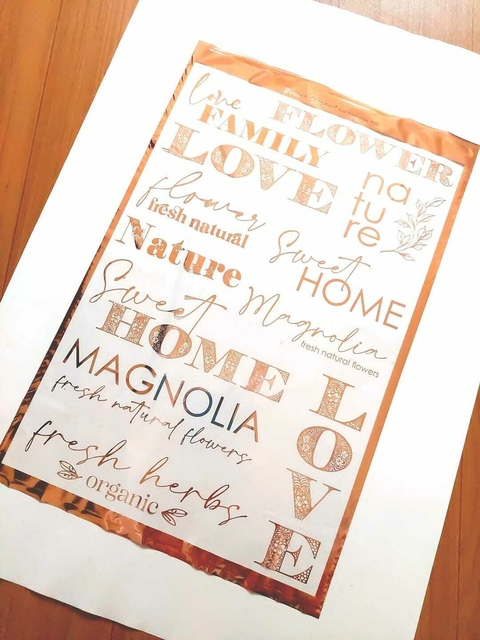 love FLOWER
FAMILY
LOVE
na
tu
re
flower
fresh natural
Nature
Sweet
HOME
Sweet
HOME
Magnolia
fresh natural flowers
MAGNOLIA
fresh natural flowers
LOVE
fresh herbs
organic